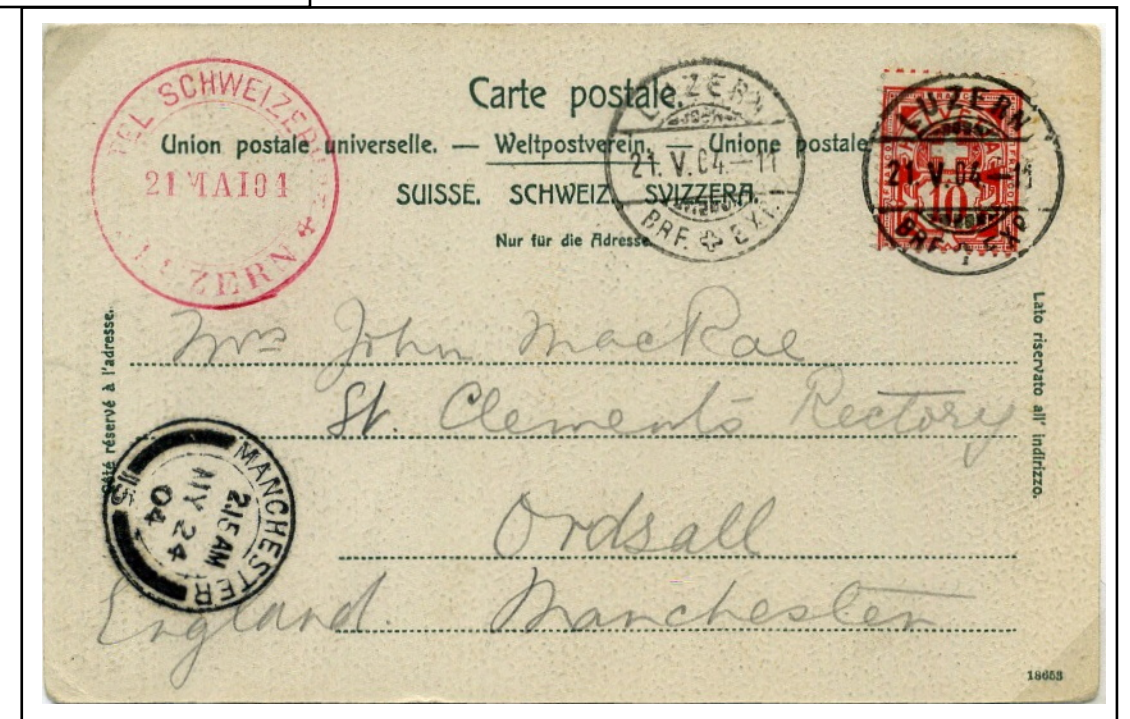 Carte postale.
Union postale universelle. — Weltpostverein. — Unione postale
SUISSE. SCHWEIZ. SVIZZERA.
Nur für die Adresse
SCHWEIZERH
21 MAI 04
LUZERN
LUZERN
21. V. 04. — 11
BRF. EXP.
LUZERN
21. V. 04. — 11
BRF. EXP.
10
réservé à l'adresse.
Lato riservato all' indirizzo.
Mrs John MacRae
St. Clements Rectory
Ordsall
England. Manchester
MANCHESTER
2.15 AM
MY 24
04
15
18653